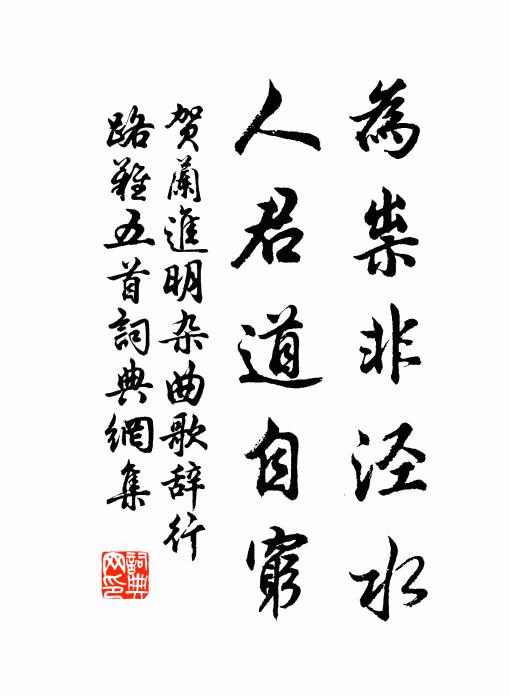 為祟非泾水
人君道自窮
贺蘭進明杂曲歌辞行
路難五首詞典網集
詞典
网印